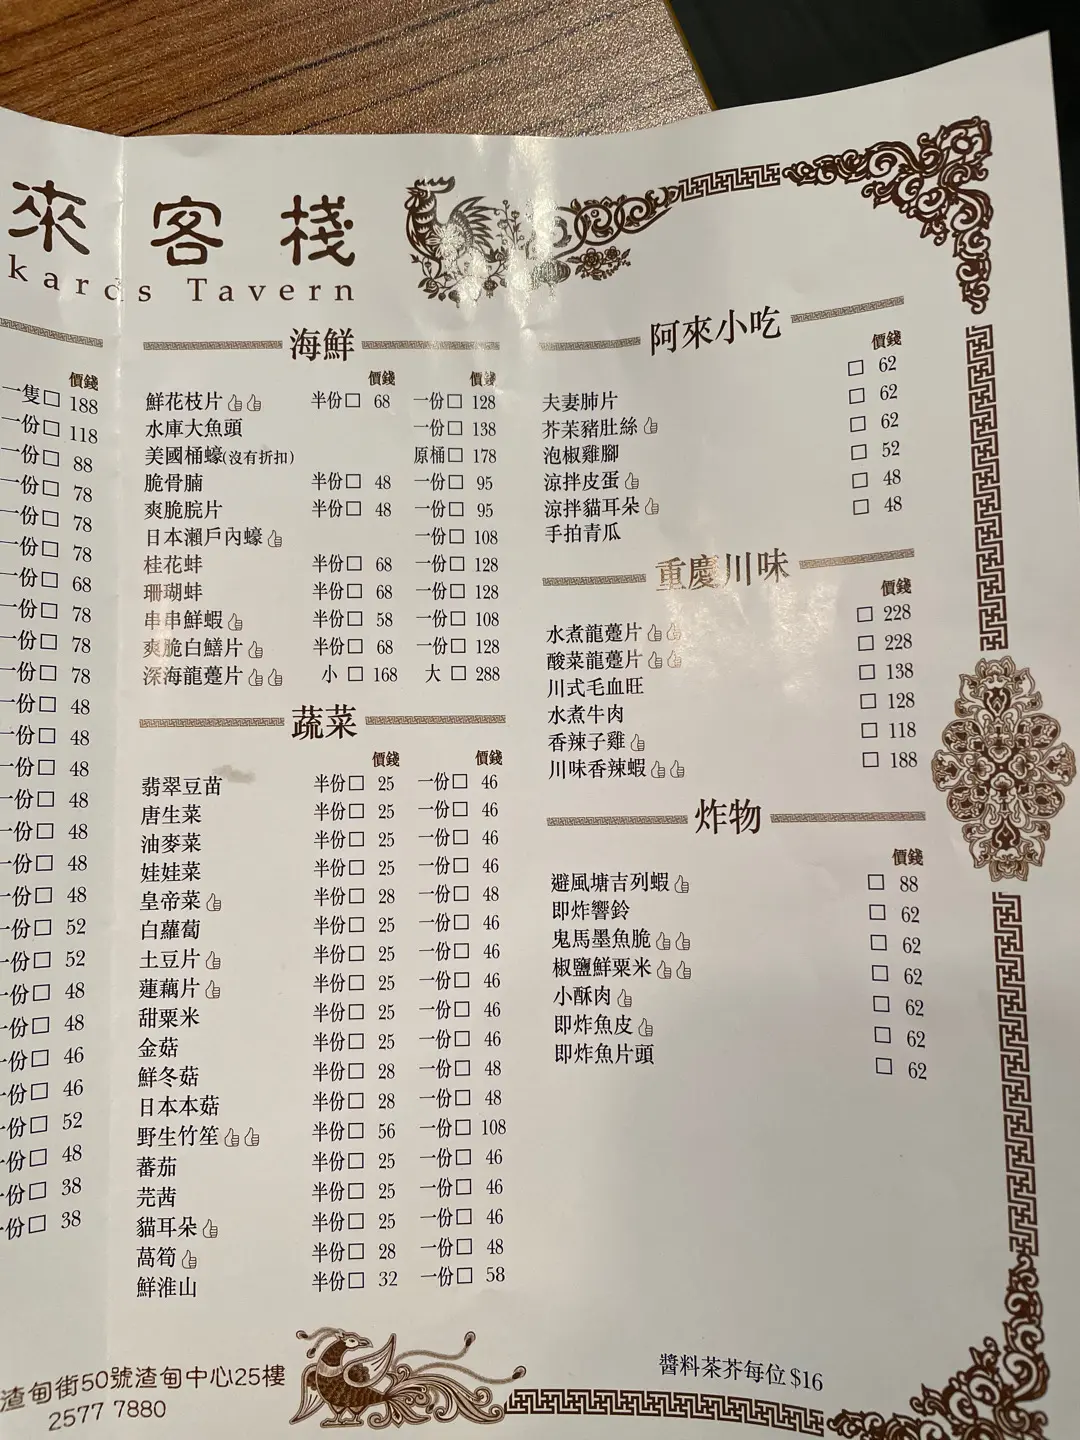 來客棧
kards Tavern
價錢
一隻□ 188
一份□ 118
一份□ 88
一份□ 78
一份□ 78
一份□ 78
一份□ 68
一份□ 78
一份□ 78
一份□ 78
一份□ 48
一份□ 48
一份□ 48
一份□ 48
一份□ 48
一份□ 48
一份□ 48
一份□ 52
一份□ 52
一份□ 48
一份□ 48
一份□ 46
一份□ 46
一份□ 52
一份□ 48
一份□ 38
一份□ 38
海鮮
價錢 價錢
鮮花枝片 半份□ 68 一份□ 128
水庫大魚頭 一份□ 138
美國桶蠔(沒有折扣) 原桶□ 178
脆骨腩 半份□ 48 一份□ 95
爽脆脘片 半份□ 48 一份□ 95
日本瀨戶內蠔 一份□ 108
桂花蚌 半份□ 68 一份□ 128
珊瑚蚌 半份□ 68 一份□ 128
串串鮮蝦 半份□ 58 一份□ 108
爽脆白鱔片 半份□ 68 一份□ 128
深海龍躉片 小 □ 168 大 □ 288
蔬菜
價錢 價錢
翡翠豆苗 半份□ 25 一份□ 46
唐生菜 半份□ 25 一份□ 46
油麥菜 半份□ 25 一份□ 46
娃娃菜 半份□ 25 一份□ 46
皇帝菜 半份□ 28 一份□ 48
白蘿蔔 半份□ 25 一份□ 46
土豆片 半份□ 25 一份□ 46
蓮藕片 半份□ 25 一份□ 46
甜粟米 半份□ 25 一份□ 46
金菇 半份□ 25 一份□ 46
鮮冬菇 半份□ 28 一份□ 48
日本本菇 半份□ 28 一份□ 48
野生竹笙 半份□ 56 一份□ 108
蕃茄 半份□ 25 一份□ 46
芫茜 半份□ 25 一份□ 46
貓耳朵 半份□ 25 一份□ 46
萵筍 半份□ 28 一份□ 48
鮮淮山 半份□ 32 一份□ 58
阿來小吃
價錢
夫妻肺片 □ 62
芥茉豬肚絲 □ 62
泡椒雞腳 □ 62
涼拌皮蛋 □ 52
涼拌貓耳朵 □ 48
手拍青瓜 □ 48
重慶川味
價錢
水煮龍躉片 □ 228
酸菜龍躉片 □ 228
川式毛血旺 □ 138
水煮牛肉 □ 128
香辣子雞 □ 118
川味香辣蝦 □ 188
炸物
價錢
避風塘吉列蝦 □ 88
即炸響鈴 □ 62
鬼馬墨魚脆 □ 62
椒鹽鮮粟米 □ 62
小酥肉 □ 62
即炸魚皮 □ 62
即炸魚片頭 □ 62
醬料茶芥每位 $16
渣甸街50號渣甸中心25樓
2577 7880